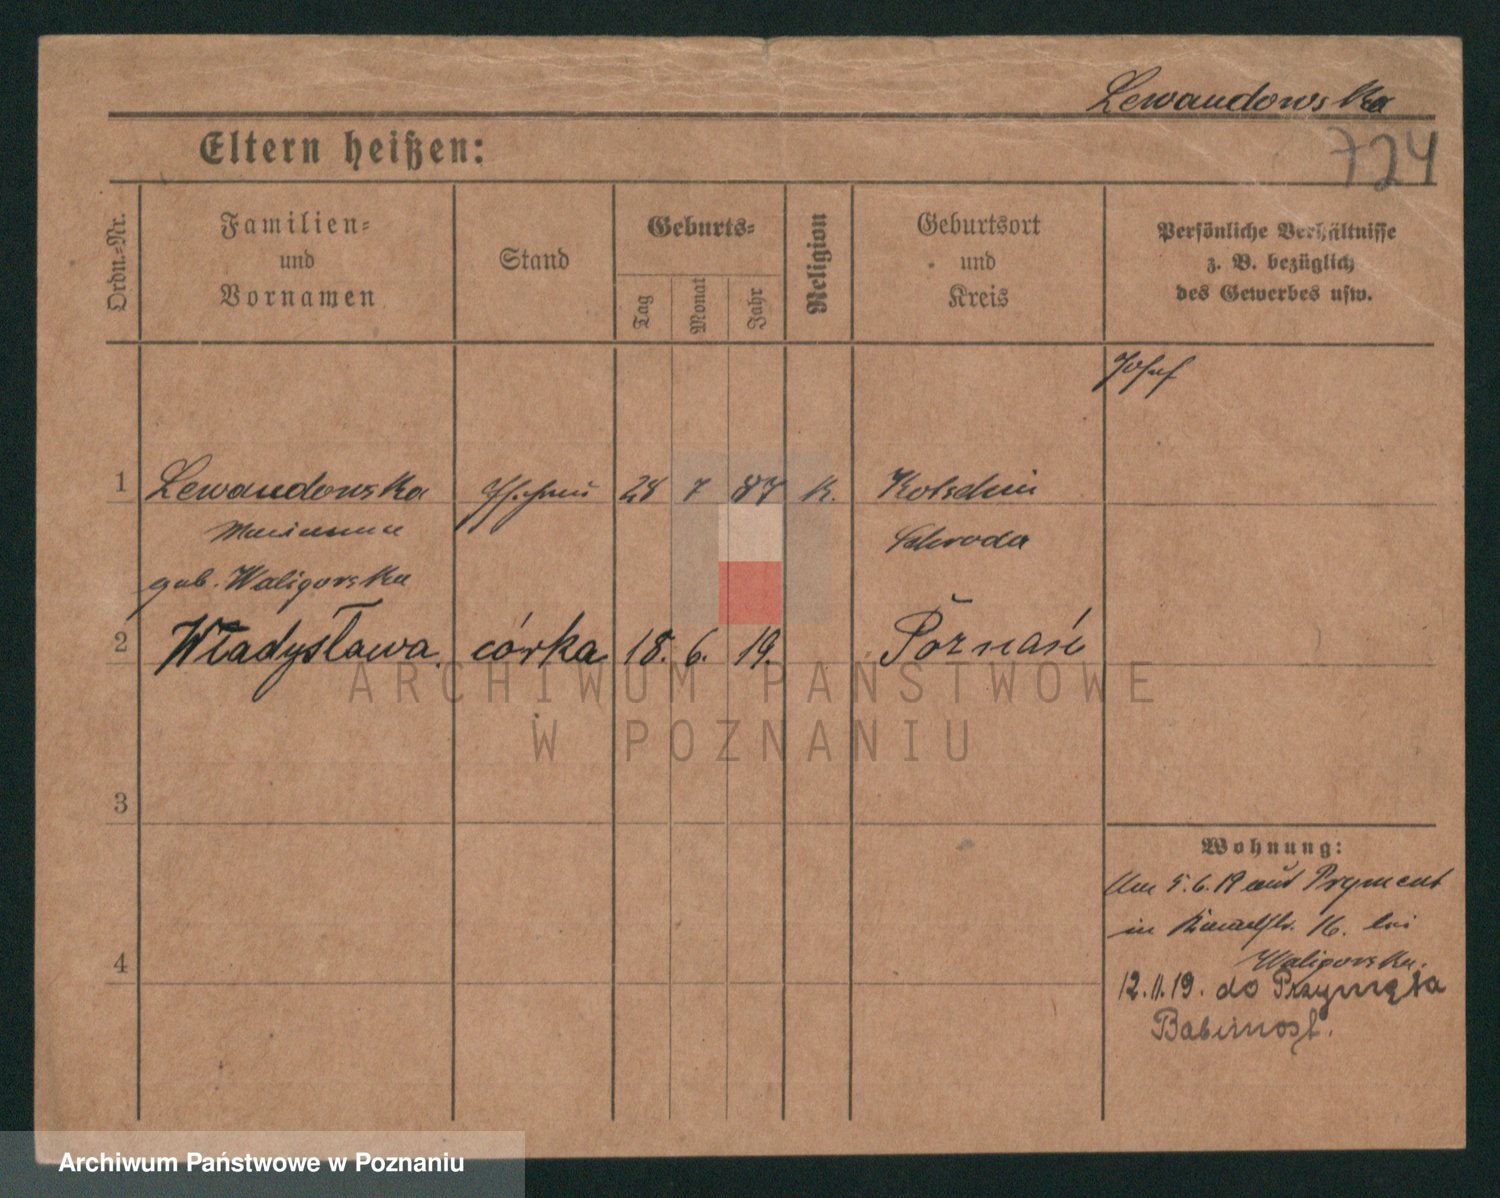 Lewandowska
724
Eltern heißen:
Ordn.-Nr.
Familien-
und
Vornamen
Stand
Geburts-
Tag
Monat
Jahr
Religion
Geburtsort
und
Kreis
Persönliche Verhältnisse
z. B. bezüglich
des Gewerbes usw.
Josef
1 Lewandowska 28 7 87 K.
Marianna Schroda
geb. Waligorska
2 Władysława córka 18. 6. 19. Poznań
3
4
Wohnung:
Am 5.6.19 aus Pryment
in 16. bei
Waligorska.
12.11.19. do Przymęta
Babimost.
ARCHIWUM PAŃSTWOWE
W POZNANIU
Archiwum Państwowe w Poznaniu